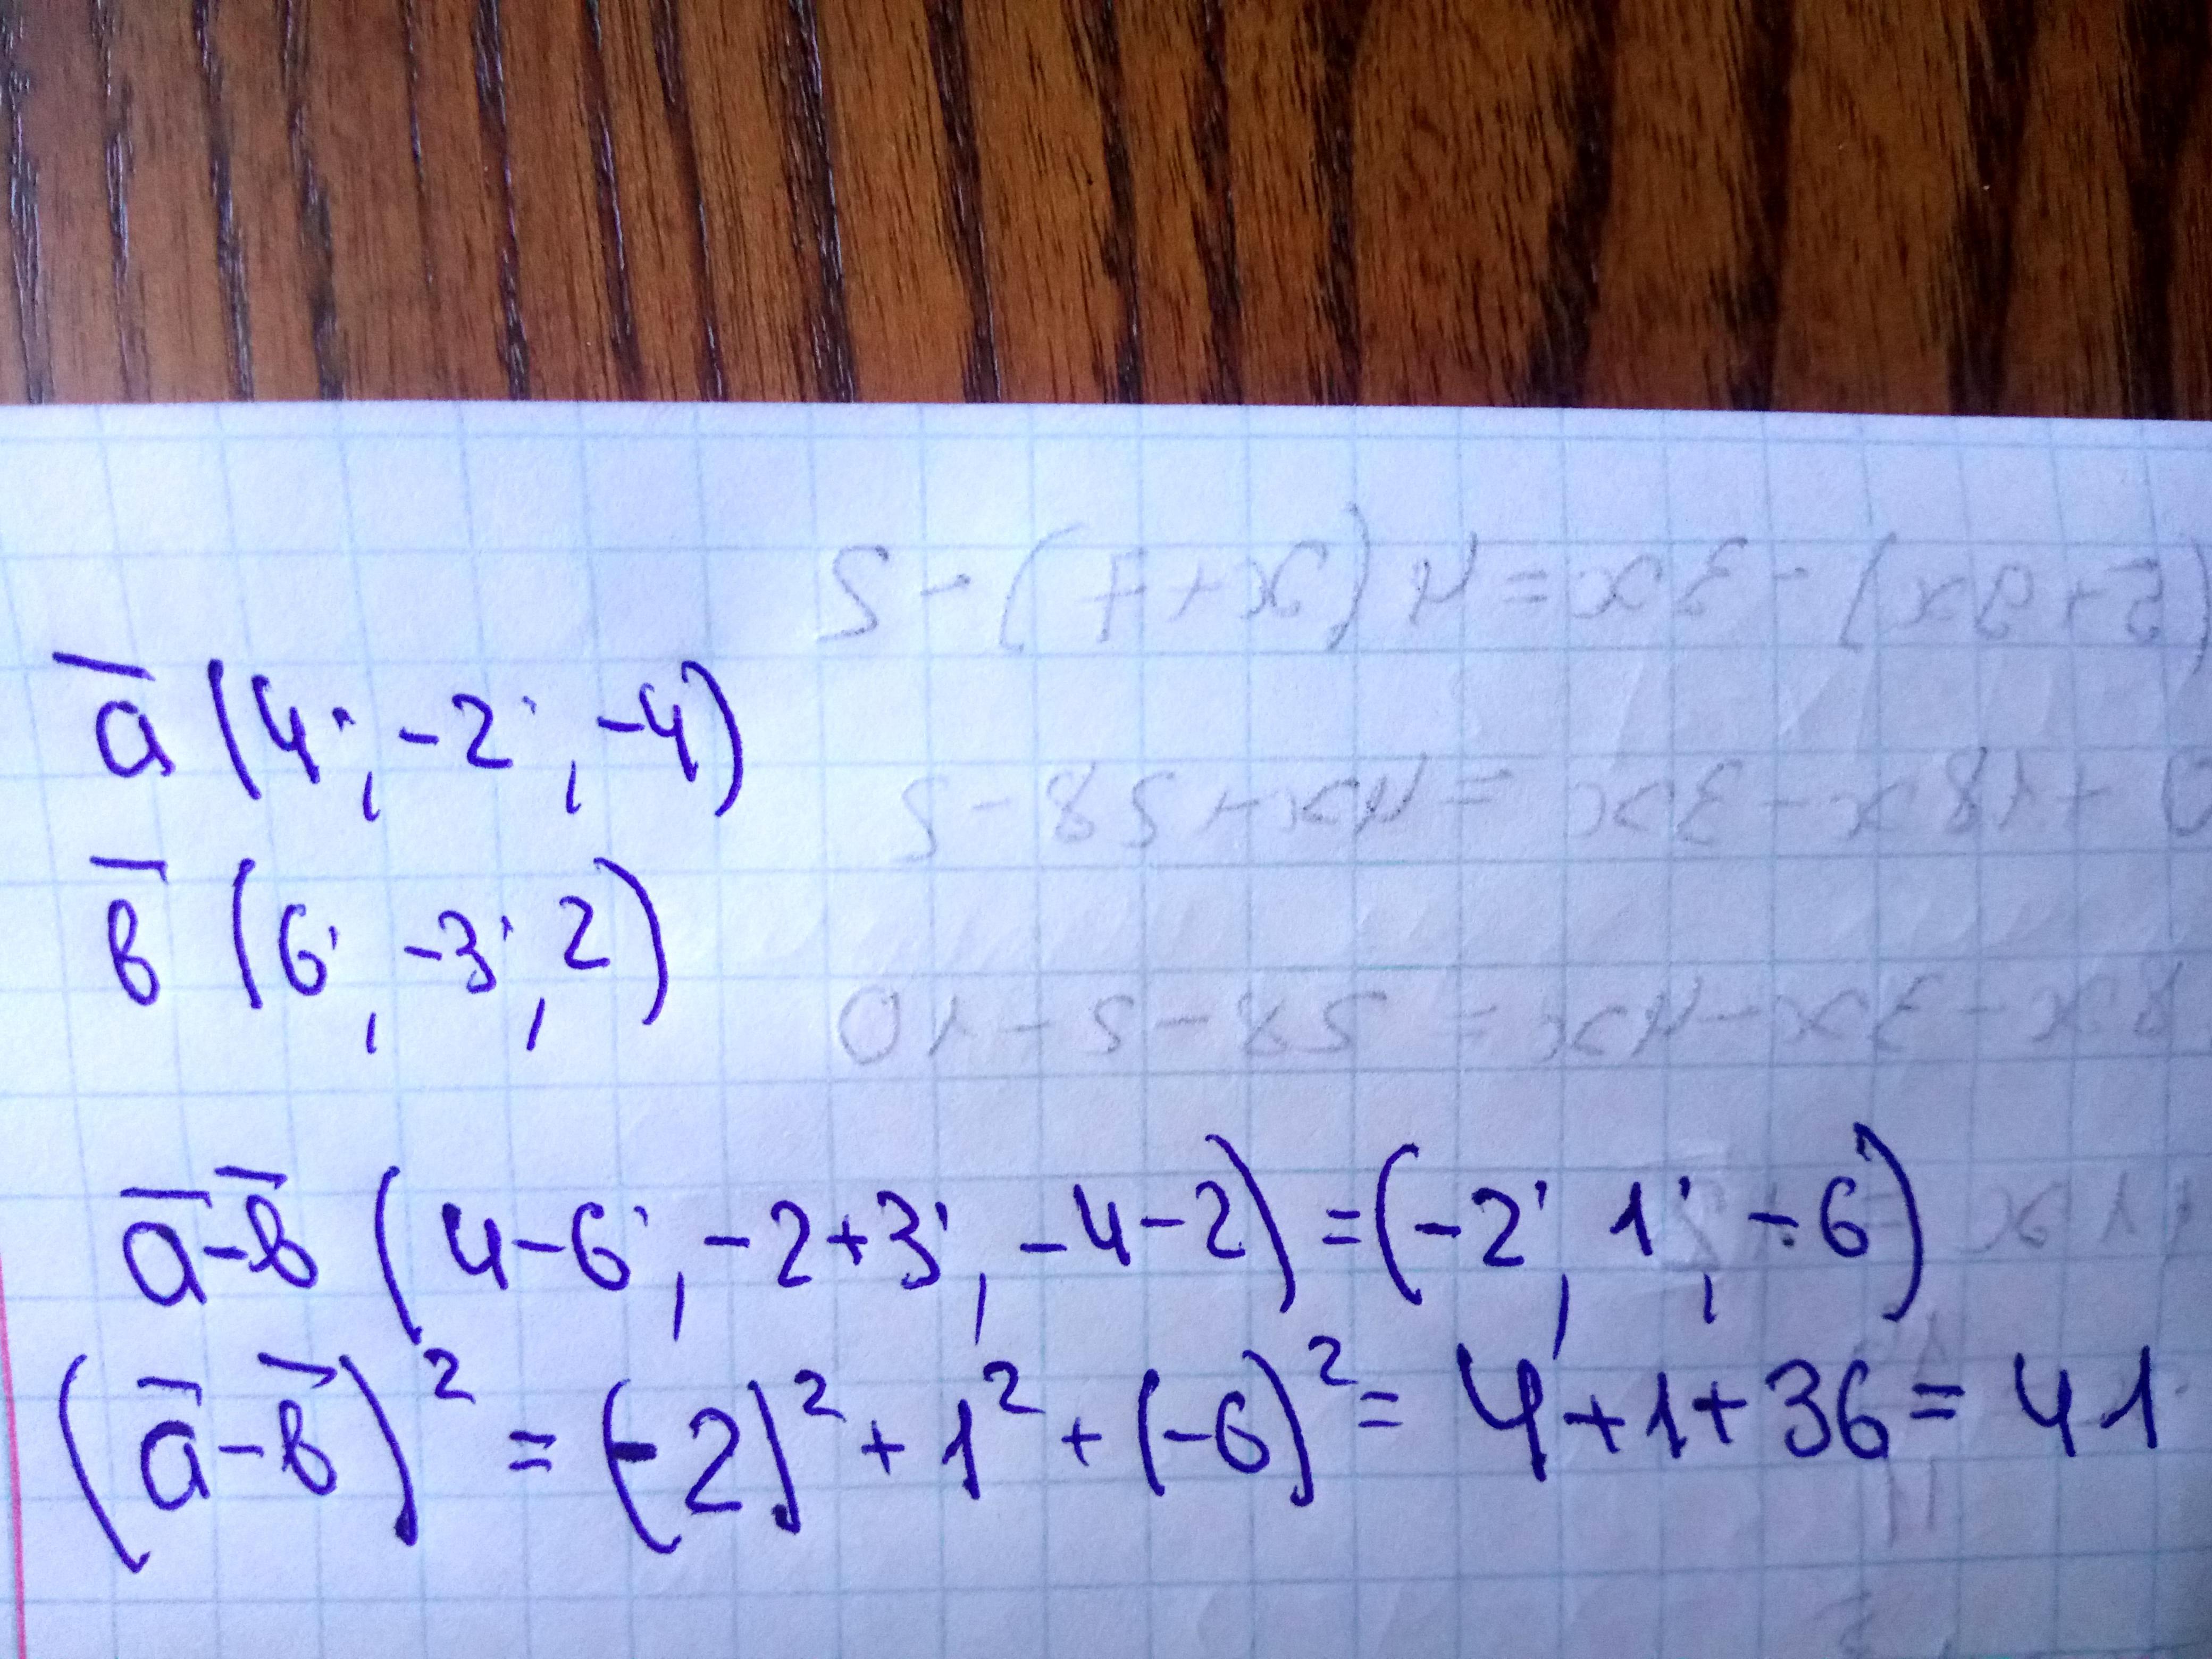 a̅ (4; -2; -4)
в̅ (6; -3; 2)
a̅-в̅ (4-6; -2+3; -4-2) = (-2; 1; -6)
(a̅-в̅)² = (-2)² + 1² + (-6)² = 4+1+36 = 41